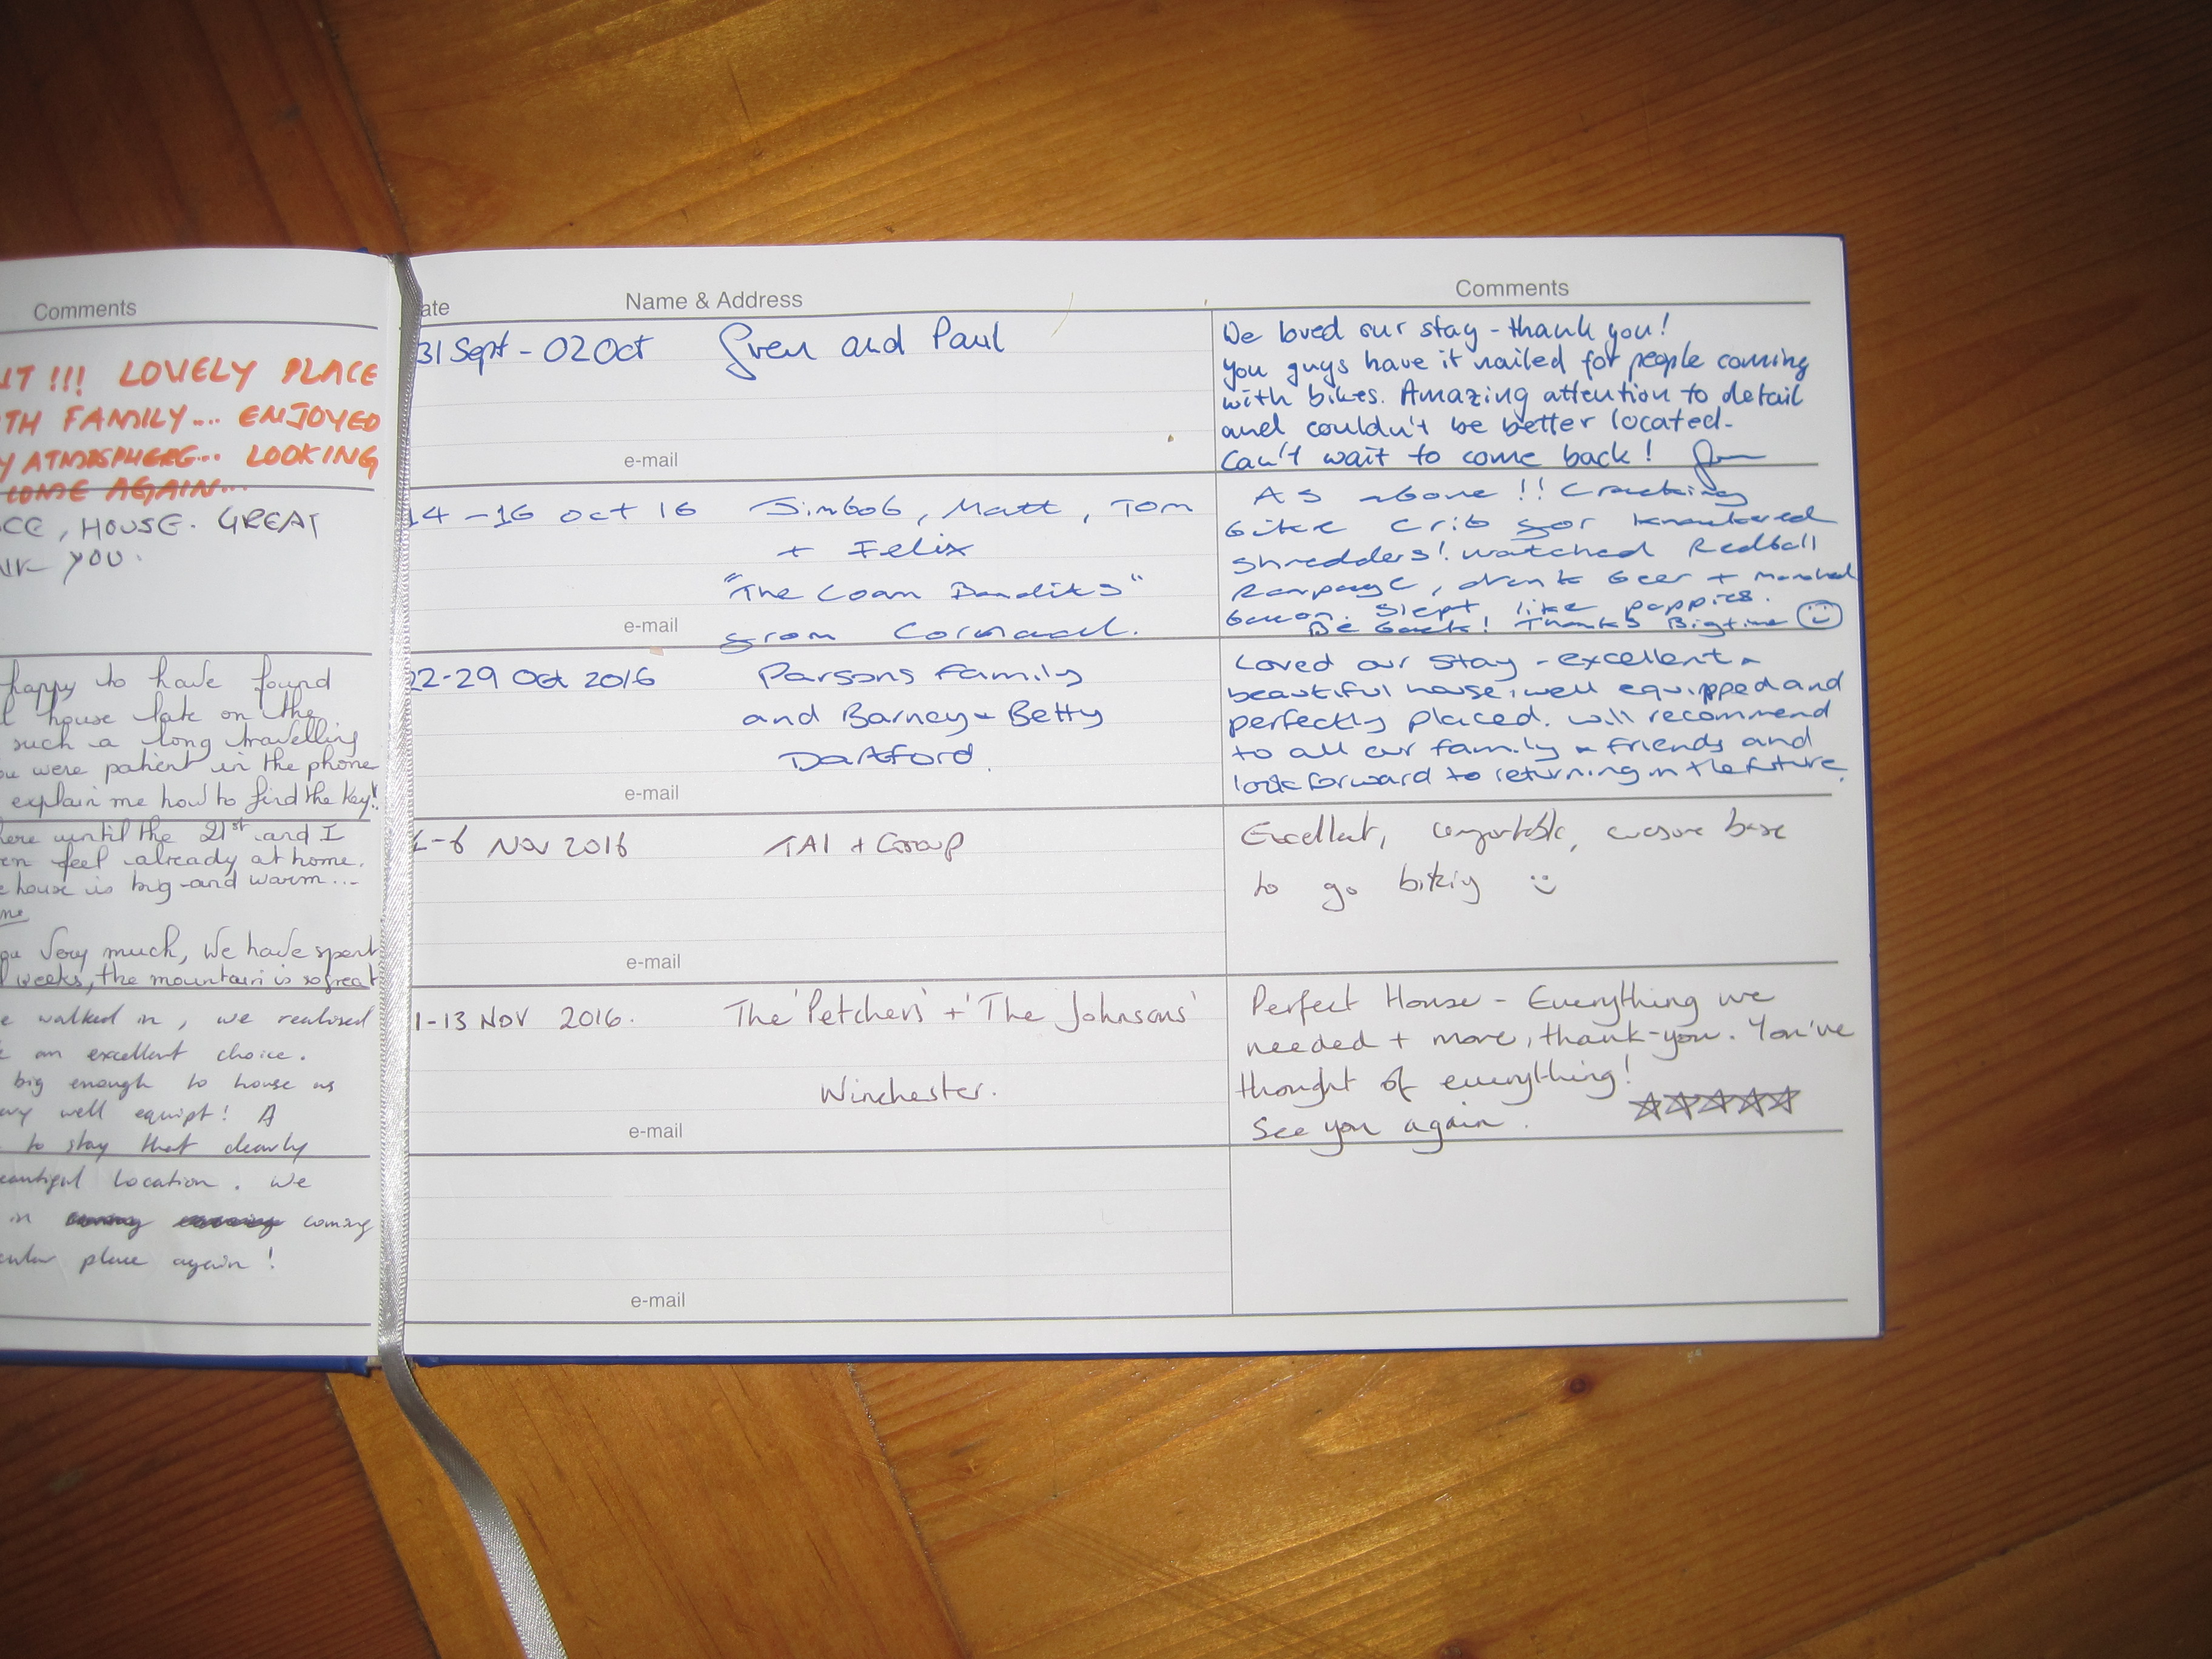 Comments
!!! LOVELY PLACE
FAMILY... ENJOYED
ATMOSPHERE... LOOKING
COME AGAIN...
, HOUSE. GREAT
YOU.
happy to have found
house late on the
such a long travelling
were patient in the phone
explain me how to find the key!
until the 21st and I
feel already at home.
house is big and warm...
very much, we have spent
weeks, the mountain is so great
walked in, we realised
an excellent choice.
big enough to house us
well equipt! A
to stay that clearly
location. We
in coming
place again!
ate Name & Address Comments
31 Sept - 02 Oct Gwen and Paul
We loved our stay - thank you!
you guys have it nailed for people coming
with bikes. Amazing attention to detail
and couldn't be better located.
Can't wait to come back!
e-mail
14 - 16 Oct 16 Jimbob, Matt, Tom
+ Felix
"The Loam Bandits"
from Cornwall.
As above!! Cracking
bike crib for knackered
shredders! watched Redbull
Rampage, drank beer + munched
bacon. Slept like puppies.
Be back! Thanks Bigtime
e-mail
22-29 Oct 2016 Parsons Family
and Barney + Betty
Dartford.
Loved our stay - excellent +
beautiful house, well equipped and
perfectly placed. will recommend
to all our family + friends and
look forward to returning in the future.
e-mail
-6 Nov 2016 TAI + Group
Excellent, comfortable, awesome base
to go biking
e-mail
1-13 NOV 2016. The 'Petchers' + 'The Johnsons'
Winchester.
Perfect House - Everything we
needed + more, thank-you. You've
thought of everything!
See you again.
e-mail
e-mail